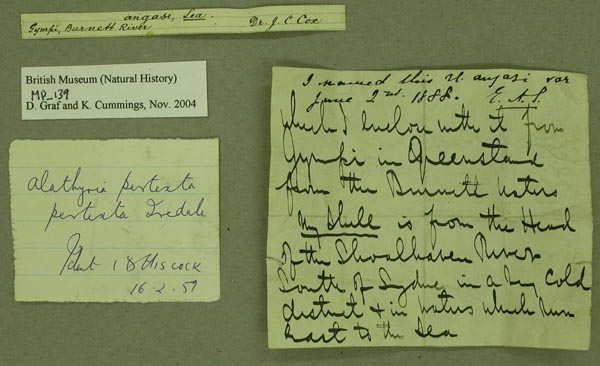 angasi, Lea.
Gympi, Burnett River Dr. J. C. Cox
British Museum (Natural History)
MP_139
D. Graf and K. Cummings, Nov. 2004
Alathyria pertexta
pertexta Iredale
Ident I D Hiscock
16-2-51
I named this U. angasi var
June 2nd. 1888. E. A. S.
which I enclose with it from
Gympi in Queensland
from the Burnett waters
My Shell is from the Head
of the Shoalhaven River
South of Sydney in a very cold
district & in waters which run
East to the Sea